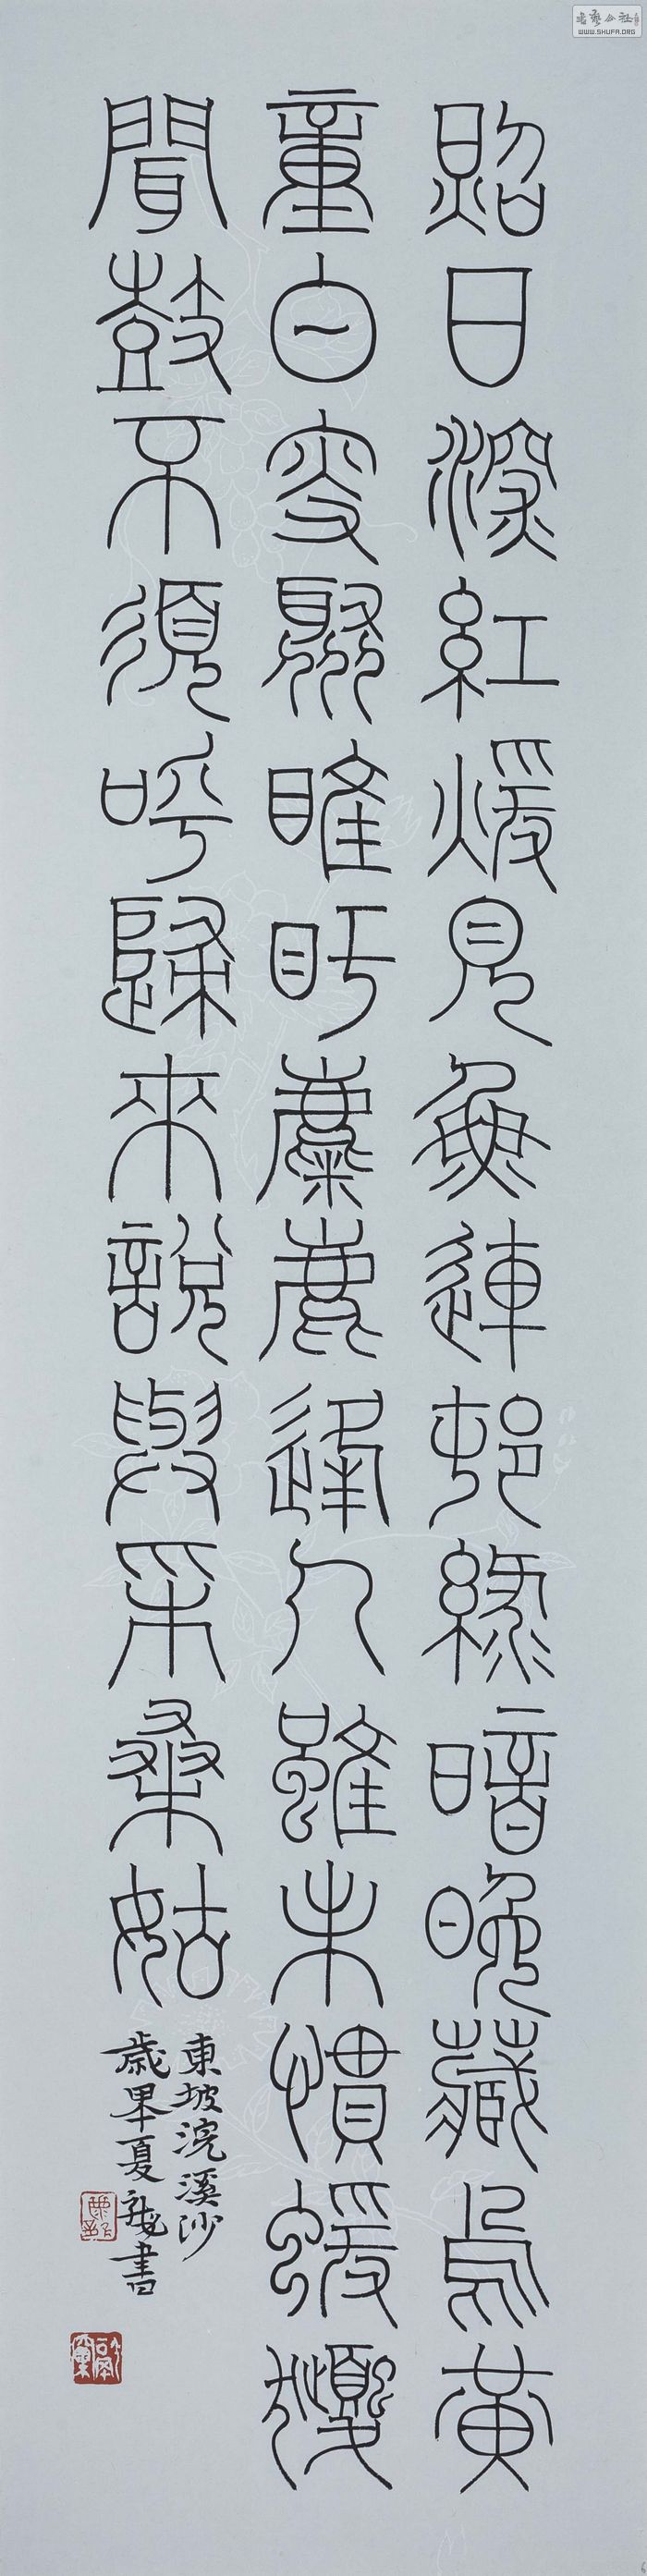 照日深紅煖見魚連邨綠暗晚藏烏黃
童白叟聚睢盱麋鹿逢人雖未慣蝯猱
聞鼓不須呼歸來說與采桑姑
東坡浣溪沙
歲畢夏 書
書藝公社
WWW.SHUFA.ORG